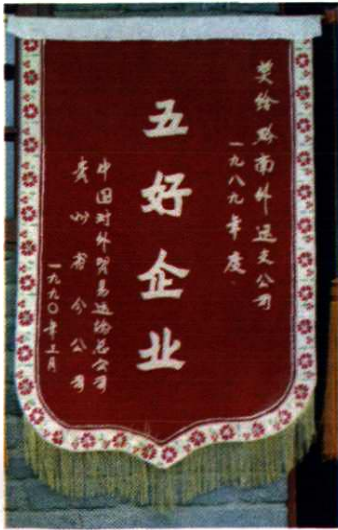 奖给黔南外运支公司
一九八九年度
五好企业
中国对外贸易运输总公司
贵州省分公司
一九九〇年三月